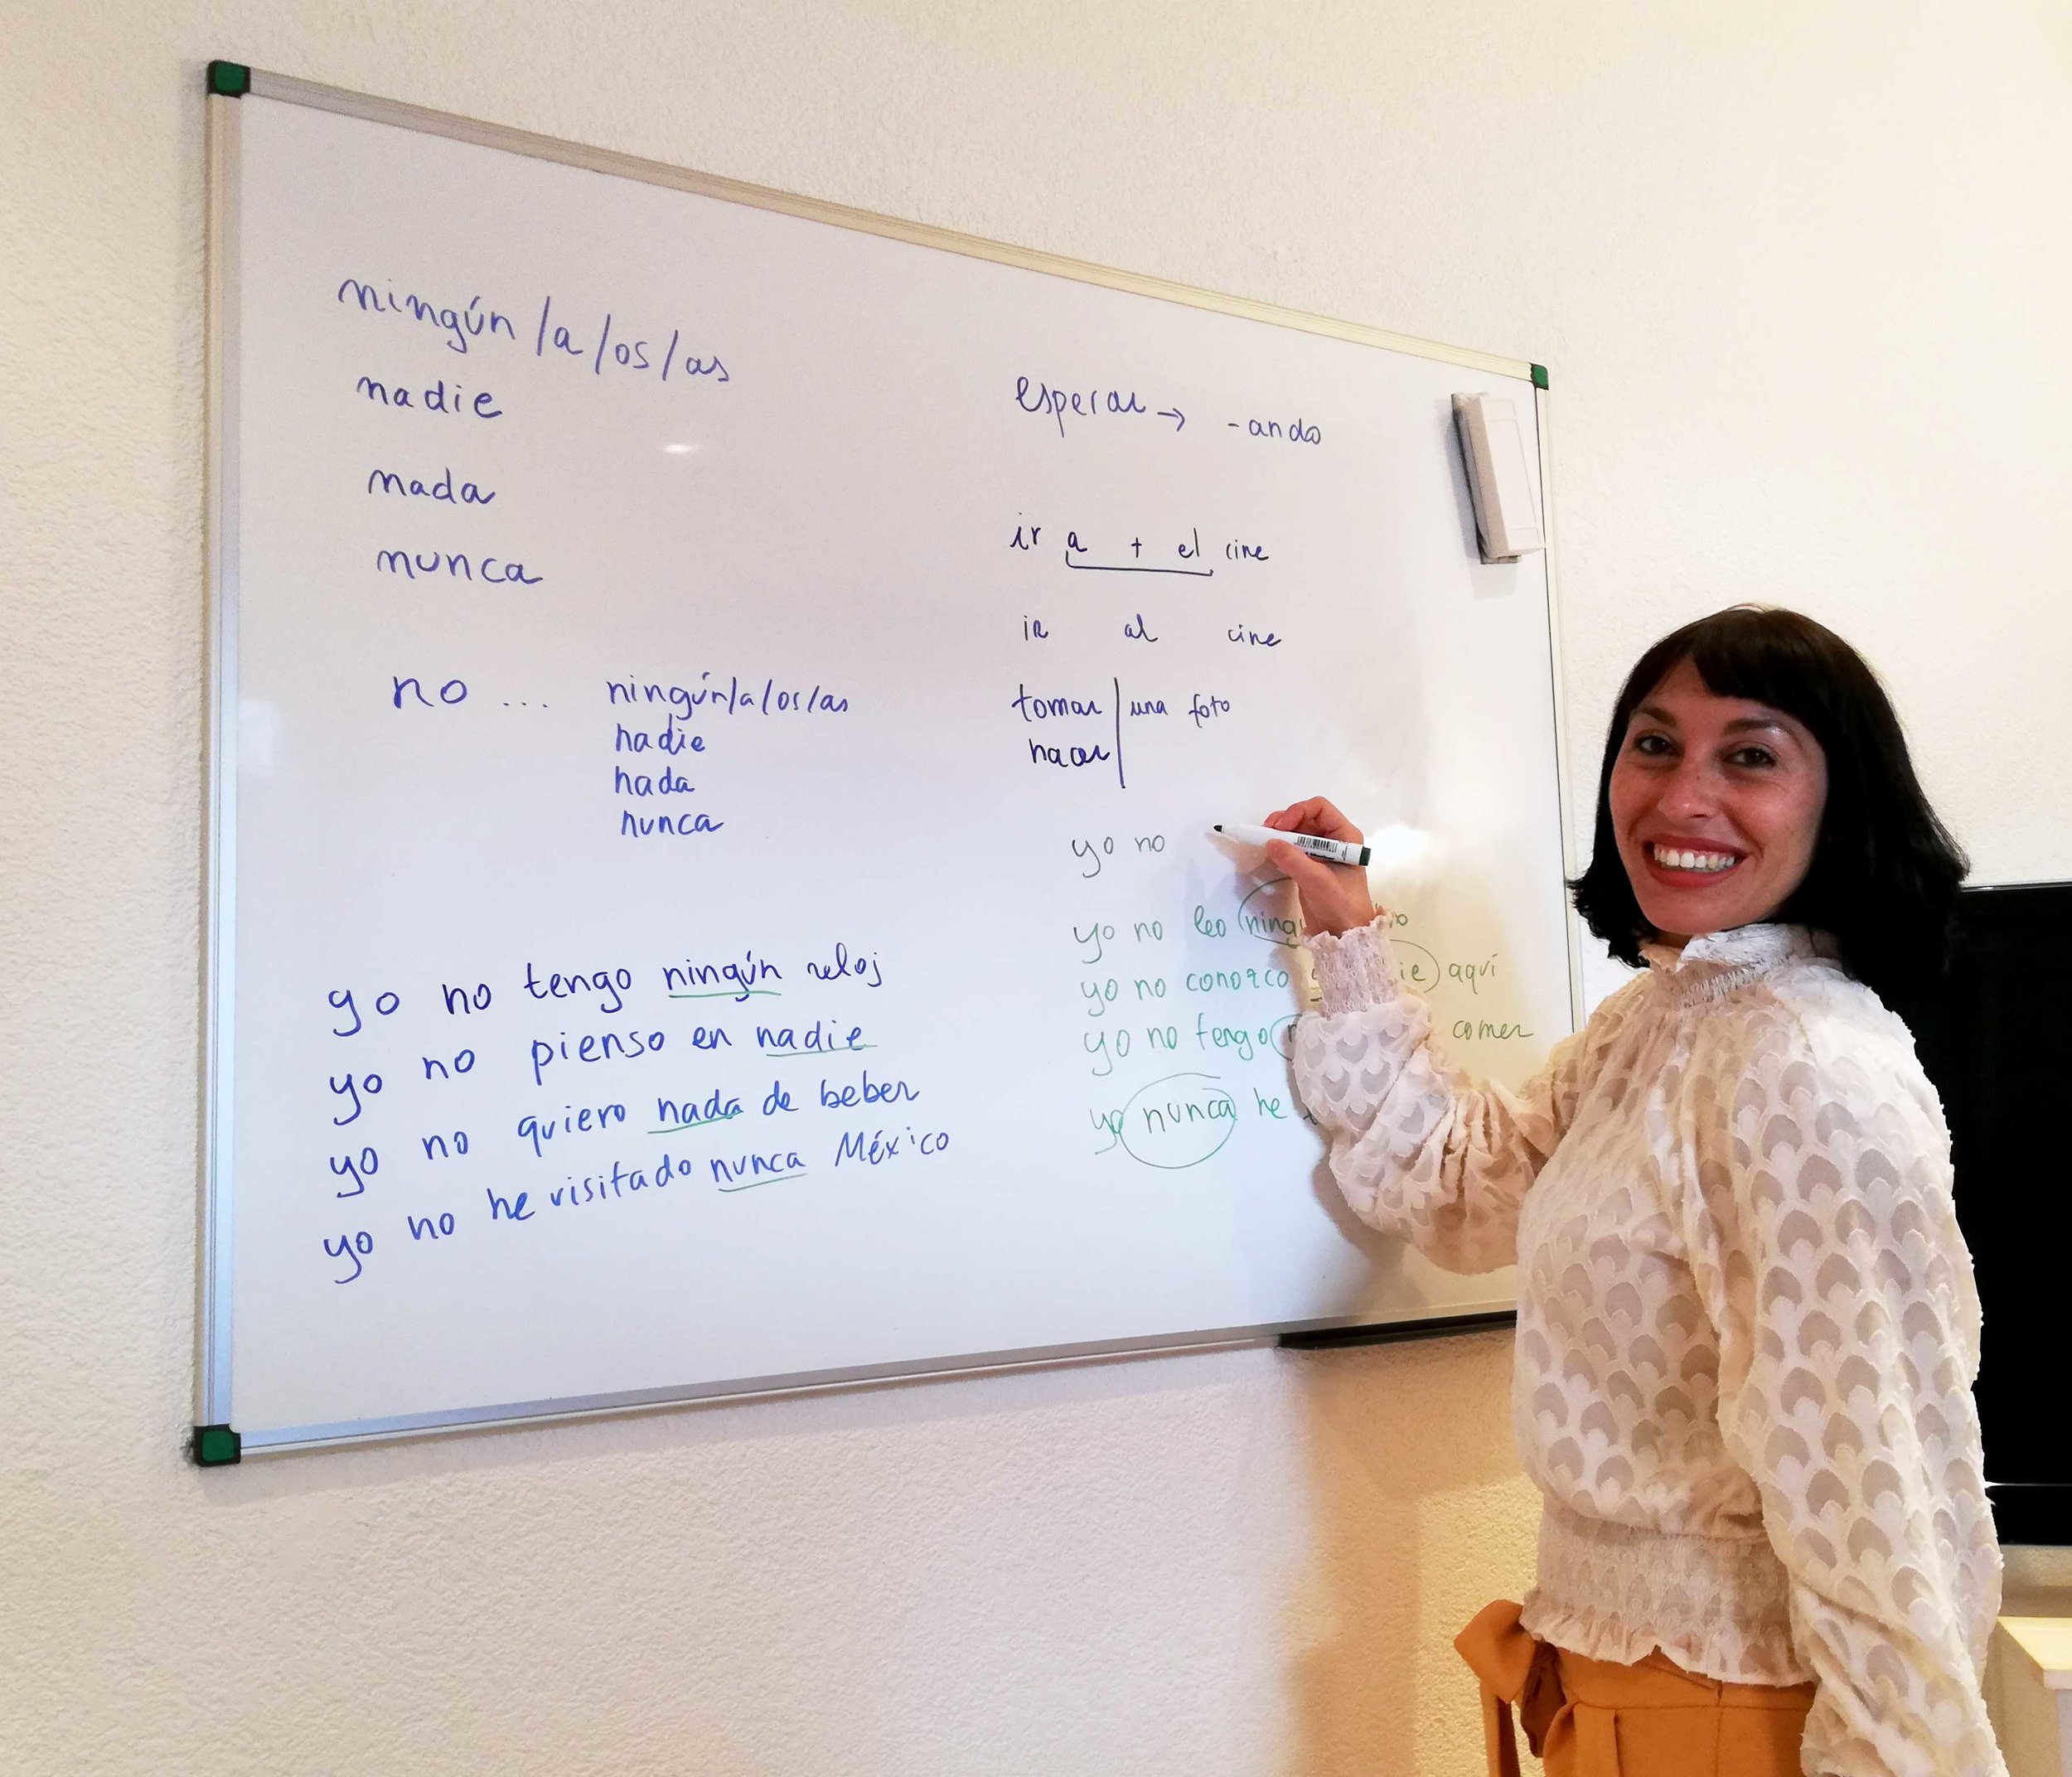 ningún/a/os/as
nadie
nada
nunca
no ... ningún/a/os/as
nadie
nada
nunca
yo no tengo ningún reloj
yo no pienso en nadie
yo no quiero nada de beber
yo no he visitado nunca México
esperar → -ando
ir a + el cine
ir al cine
tomar | una foto
hacer |
yo no
yo no leo
yo no conozco aquí
yo no tengo comer
yo nunca he